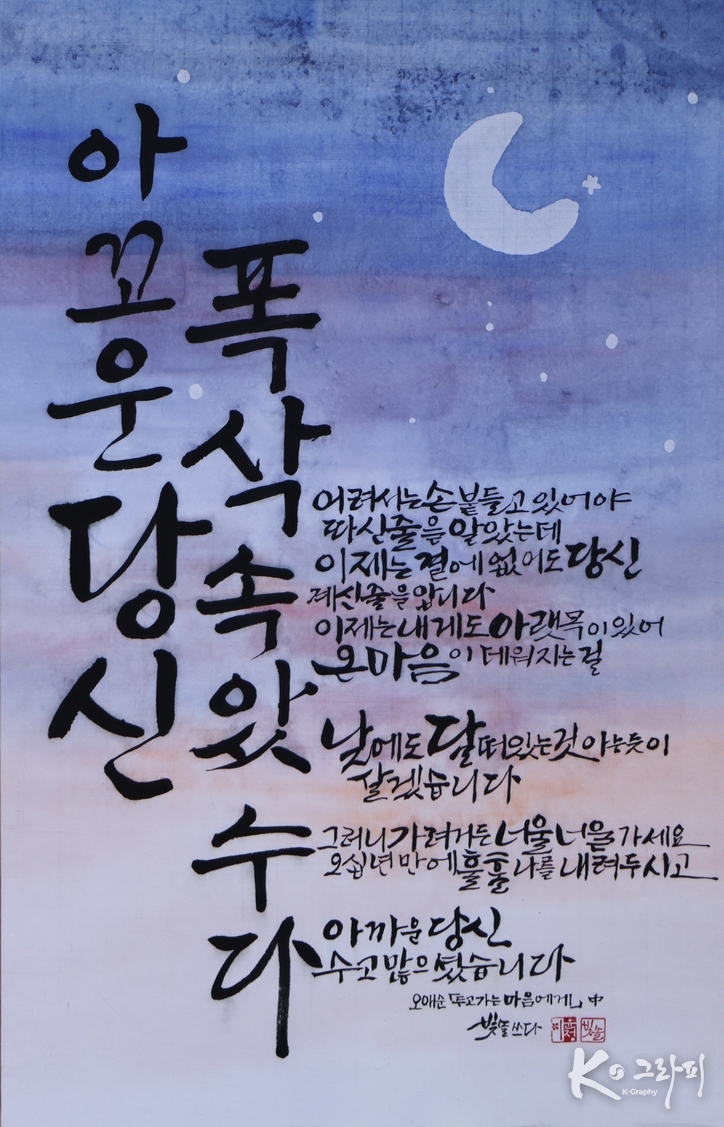 아꼬운 당신
폭삭 속았수다
어려서는 손 붙들고 있어야
따신 줄을 알았는데
이제는 곁에 없어도 당신
계신 줄을 압니다
이제는 내게도 아랫목이 있어
온 마음이 데워지는 걸
낮에도 달 떠있는 것 아는 듯이
살겠습니다
그러니 가려거든 너울너울 가세요
오십년 만에 훌훌 나를 내려두시고
아까운 당신
수고 많으셨습니다
오애순 「두고 가는 마음에게」 中
빛솔 쓰다
빛솔
K그라피
K-Graphy